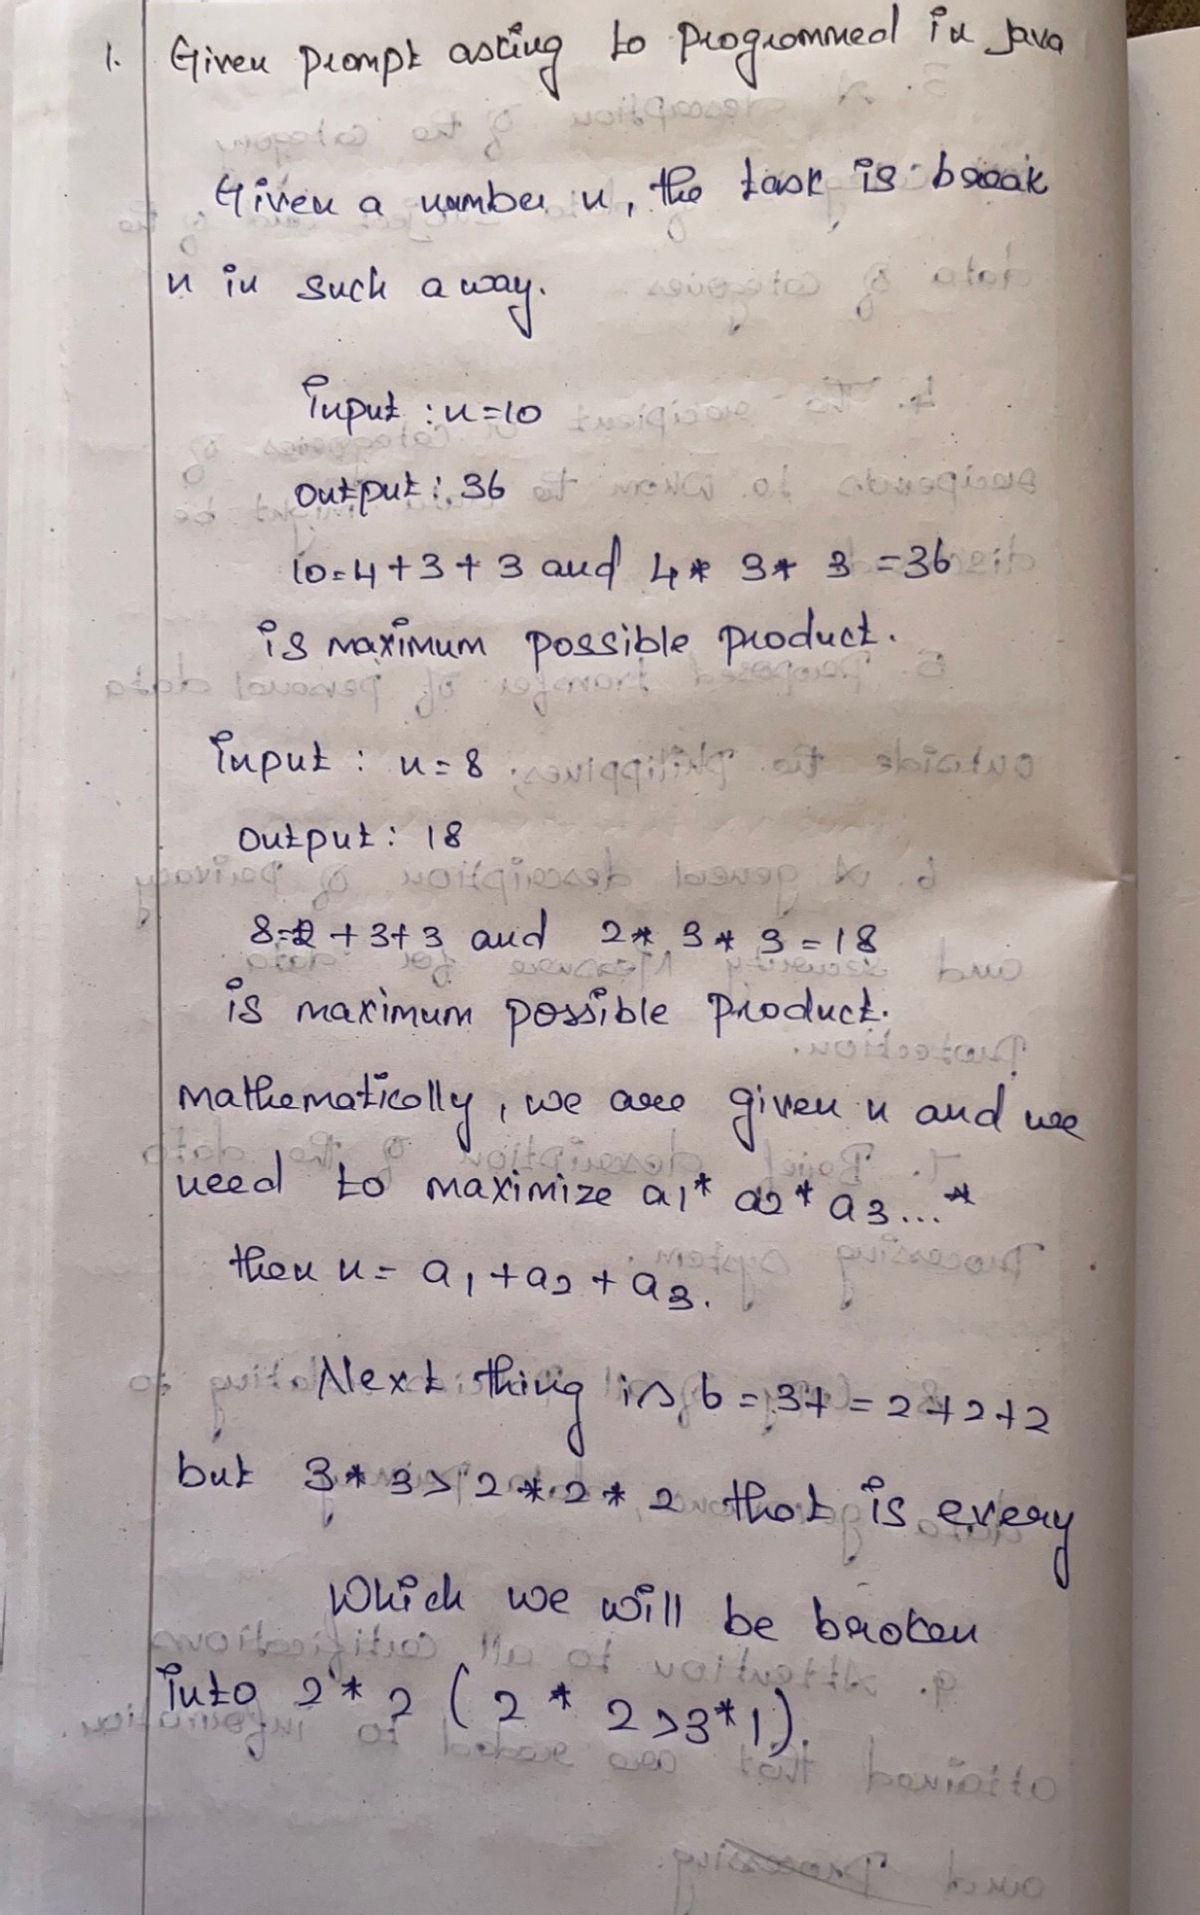 1. Given prompt asking to programmed in Java
Given a number n, the task is break
n in such a way.
Input : n=10
output : 36
10=4+3+3 and 4* 3* 3 =36
is maximum possible product.
Input : n=8
output : 18
8=2+3+3 and 2* 3* 3=18
is maximum possible product.
mathematically, we are given n and we
need to maximize a1* a2* a3...*
then n= a1+a2+a3.
Next thing is 6=3+ =2+2+2
but 3*3>2*2*2 that is every
Which we will be broken
into 2*2 (2*2>3*1).